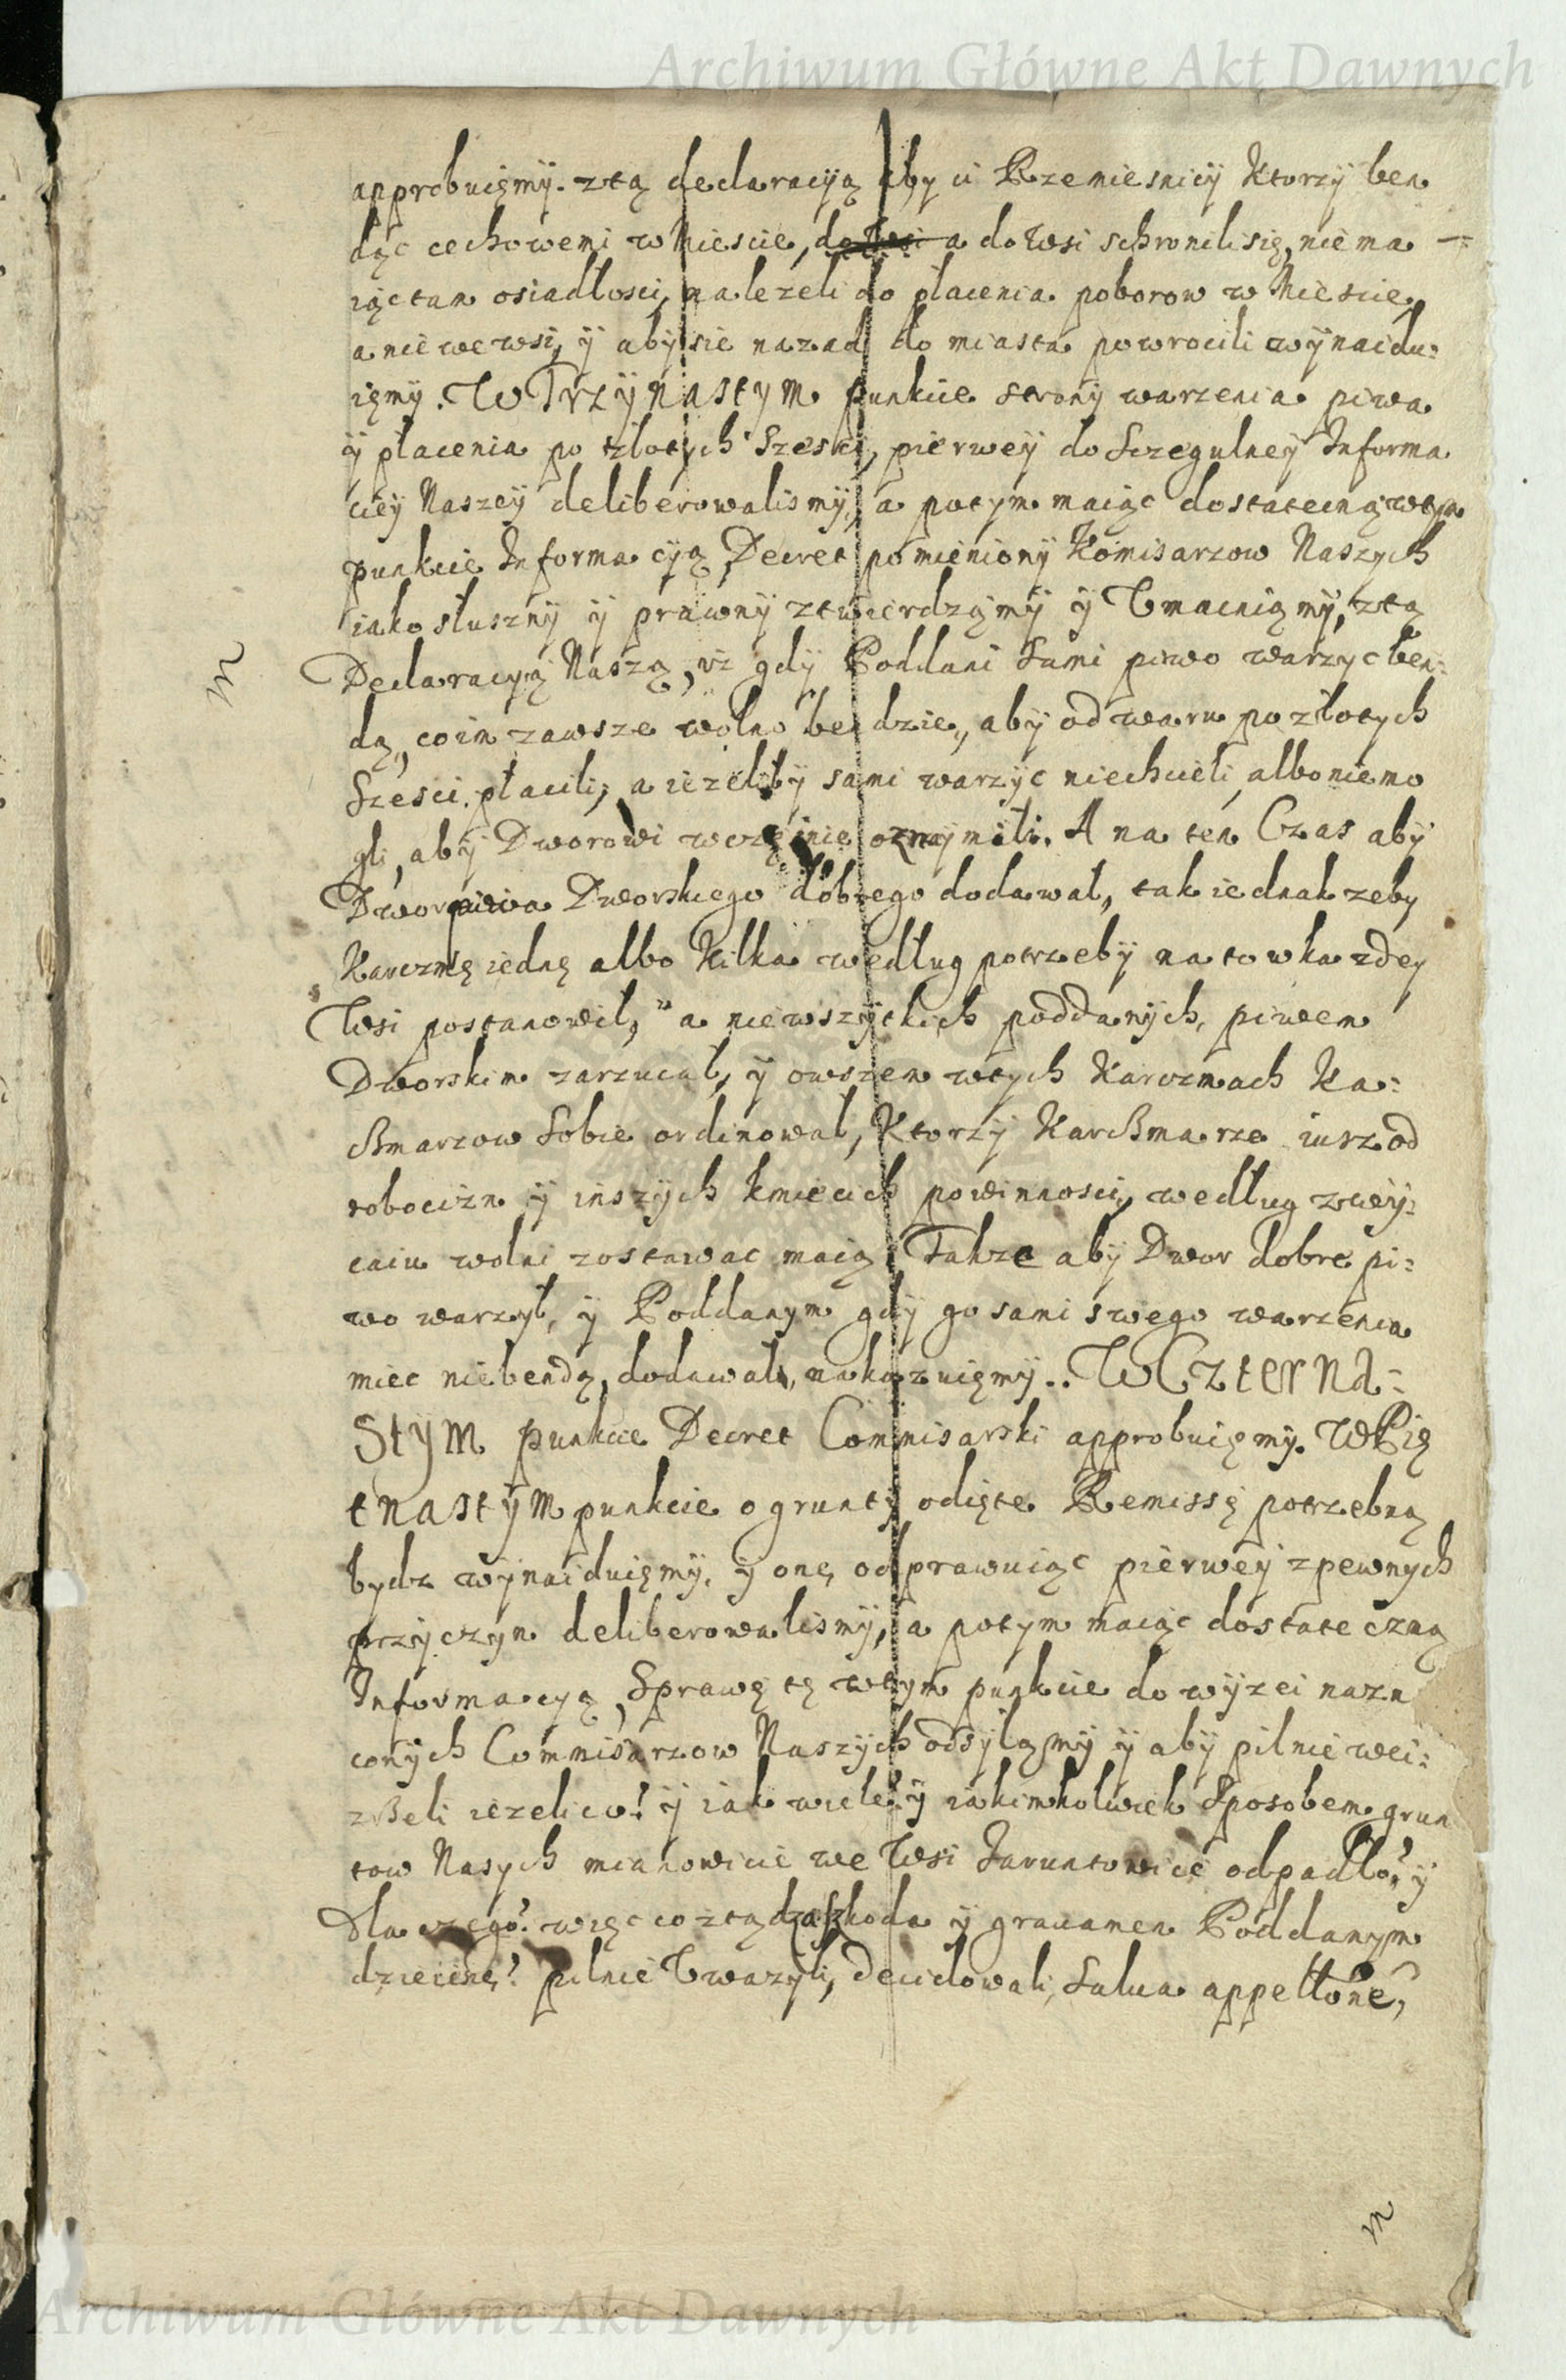 Archiwum Główne Akt Dawnych
approbuięmÿ. ztą declaracÿą aby ci Rzemiesnicÿ Ktorzÿ ben
dąc cechowemi w Miescie, do Wsi a do Wsi schronili się, nie ma
iąc tam osiadłosci, nalezeli do płacenia poborow w Miescie,
a nie we wsi, ÿ abÿ sie nazad do miasta powrocili wÿnaidu:
ięmÿ. W Trzÿnastym punkcie stronÿ warzenia piwa
ÿ płacenia po złotych Szesci, pierweÿ do Szczegulneÿ Informa
cieÿ Naszeÿ deliberowalismÿ, a potym maiąc dostatecną wtym
punkcie Informacÿą, Decret pomienionÿ Komisarzow Naszych
iako słusznÿ ÿ prawnÿ ztwierdząmÿ ÿ Vmacniąmÿ, ztą
m
Declaracyią Naszą, iż gdÿ Poddani Sami piwo warzyc ben:
dą, co im zawsze wolno bendzie, abÿ od waru po złotych
Szesci płacili, a iezelibÿ sami warzÿc niechcieli, albo niemo
gli, abÿ Dworowi wczesnie oznaÿmili. A na ten Czas abÿ
Dwor piwa Dworskiego dobrego dodawał, tak iednak zeby
Karczmę iednę albo Kilka według potrzebÿ na to w kazdey
Wsi postanowił, a niewszÿtkich poddanÿch, piwem
Dworskim zarzucał, ÿ owszem wtych Karczmach Ka:
ćßmarzow Sobie ordinował, Ktorzÿ Karćßmarze iusz od
robocizn ÿ inszÿch kmiecich powinnosci, według zwÿ:
caiu wolni zostawac maią. Takze abÿ Dwor dobre pi:
wo warzył, ÿ Poddanym gdÿ go sami swego warzenia
miec niebendą, dodawał, nakazuięmÿ. W Czterna:
stym punkcie Decret Commisarski approbuięmÿ. W Pię
tnastÿm punkcie o gruntÿ odięte Remissę potrzebną
bydz wÿnaiduięmÿ, ÿ onę odprawuiąc pierweÿ zpewnych
przÿczyn deliberowalismÿ, a potym maiąc dostateczną
Informacyą, Sprawę tę wtym punkcie do wÿzei nazn
conÿch Commisarzow Naszÿch odsyłąmÿ ÿ abÿ pilnie wei:
zßeli iezeli co? ÿ iak wiele? ÿ iakimkolwiek Sposobem grun
tow Nasych mianowicie we Wsi odpadło? ÿ
Dla czego? więc co ztąd za szkoda ÿ grauamen Poddanym
dzieie? pilnie Vwazyli, decidowali, Salua appellone,
m
Archiwum Główne Akt Dawnych